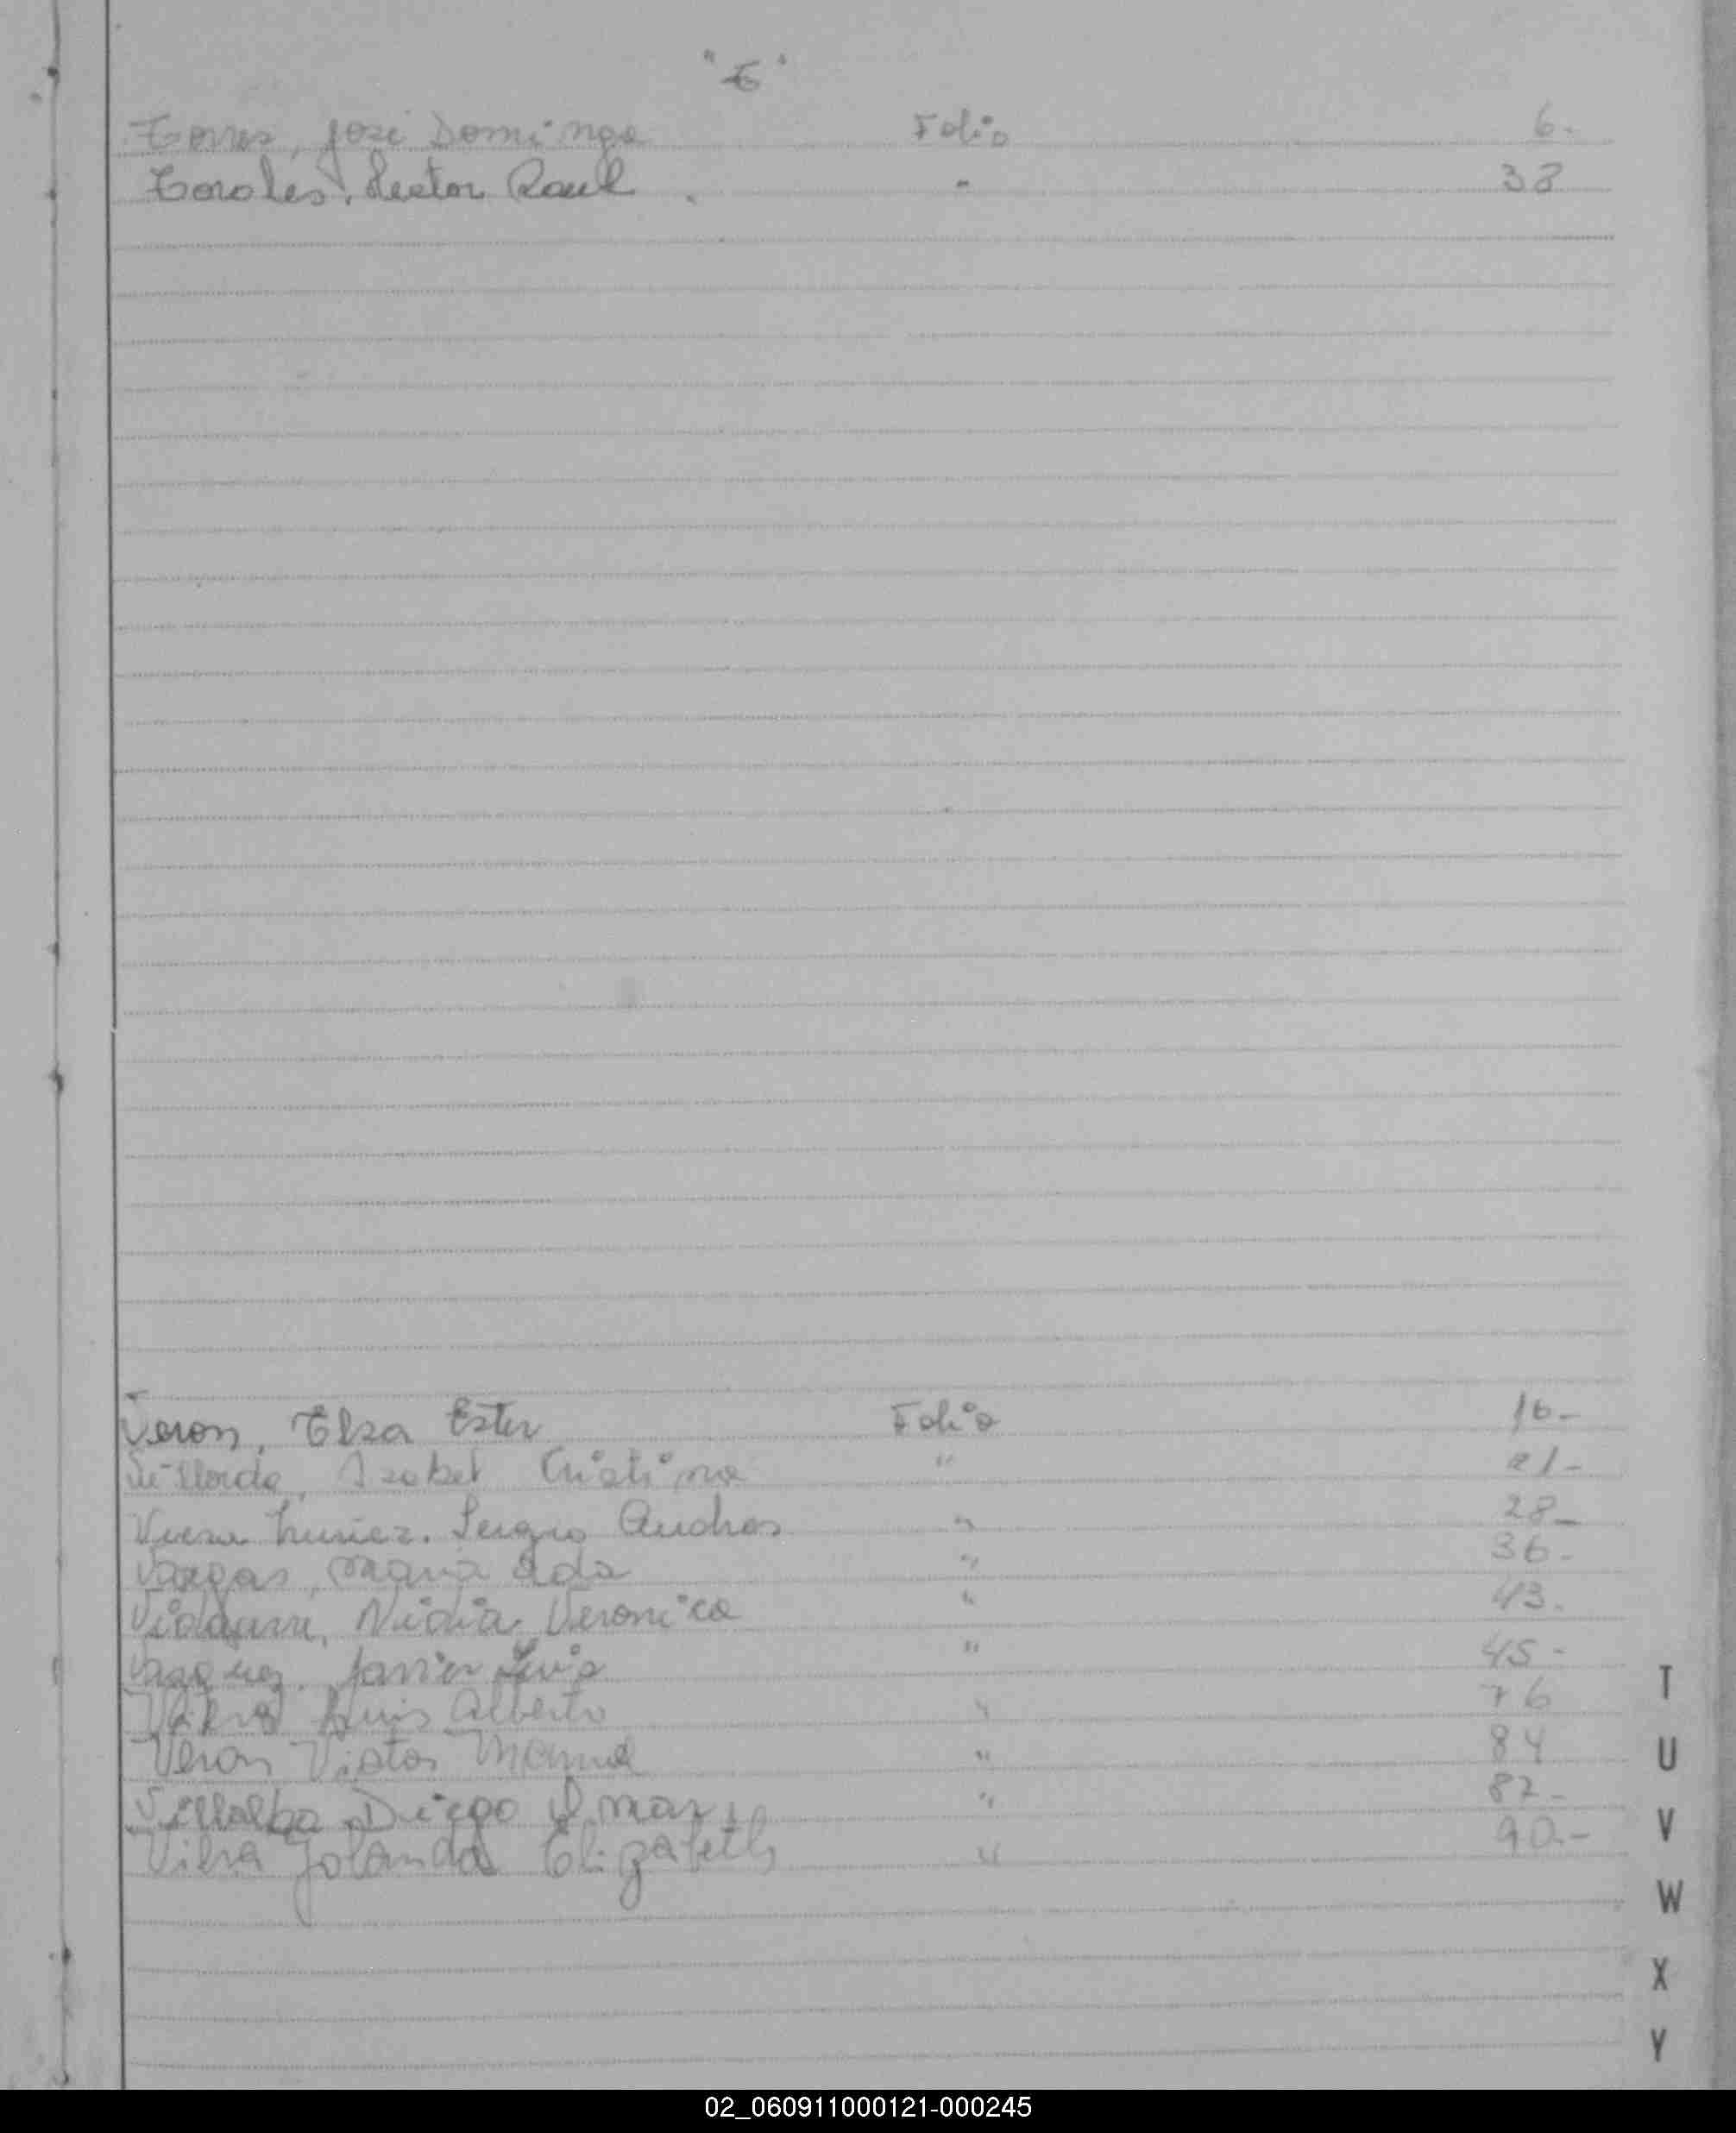 "T"
Torres, José Domingo Folio 6.-
Toroles, Hector Raul " 38
Veron, Elsa Ester Folio 16-
Villorda, Isabel Cristina " 21-
Nuñez. Sergio Andres " 28-
Vargas, Maria Ada " 36-
Nidia Veronica " 43.
Vasquez. Javier Luis " 45-
Luis Alberto " 76
Veron Victor Manuel " 84
Villalba Diego Omar " 87-
Viera Jolanda Elizabeth " 90.-
T
U
V
W
X
Y
02_060911000121-000245